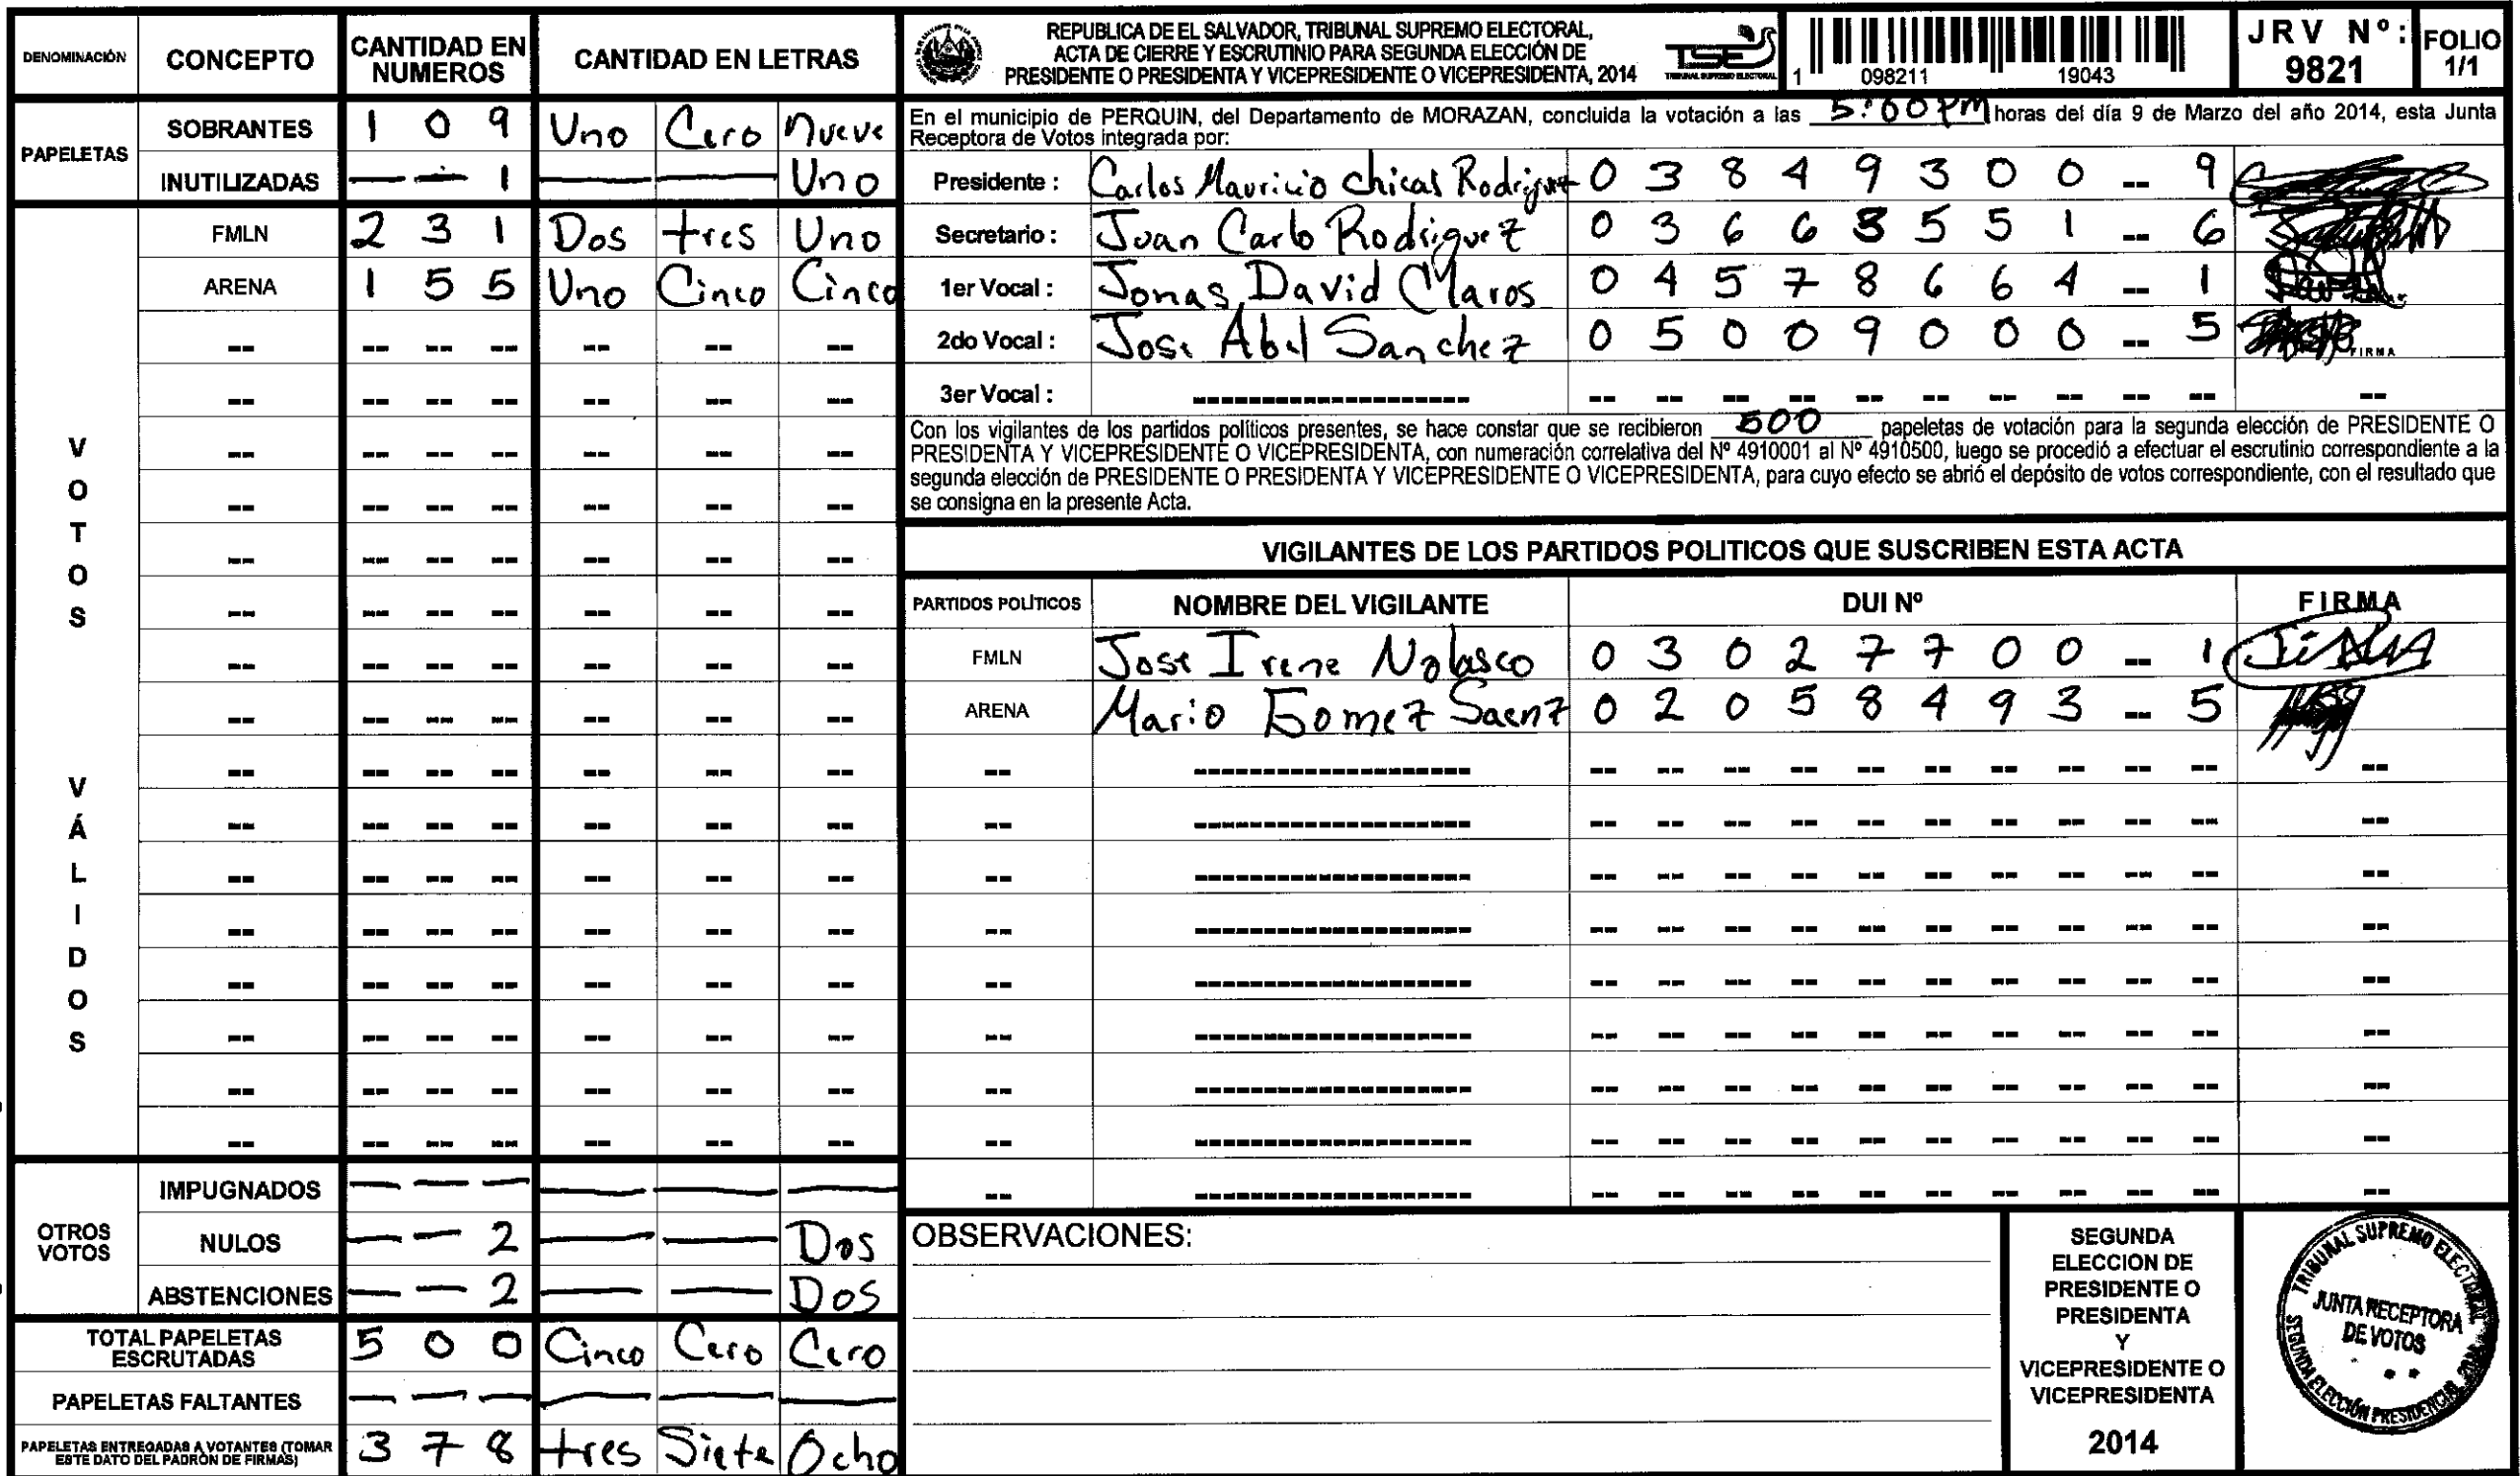 DENOMINACIÓN CONCEPTO CANTIDAD EN NUMEROS CANTIDAD EN LETRAS
PAPELETAS
SOBRANTES 1 0 9 Uno Cero Nueve
INUTILIZADAS — — 1 — — Uno
VOTOS VÁLIDOS
FMLN 2 3 1 Dos tres Uno
ARENA 1 5 5 Uno Cinco Cinco
OTROS VOTOS
IMPUGNADOS — — — — — —
NULOS — — 2 — — Dos
ABSTENCIONES — — 2 — — Dos
TOTAL PAPELETAS ESCRUTADAS 5 0 0 Cinco Cero Cero
PAPELETAS FALTANTES — — — — — —
PAPELETAS ENTREGADAS A VOTANTES (TOMAR ESTE DATO DEL PADRÓN DE FIRMAS) 3 7 8 tres Siete Ocho
REPUBLICA DE EL SALVADOR, TRIBUNAL SUPREMO ELECTORAL,
ACTA DE CIERRE Y ESCRUTINIO PARA SEGUNDA ELECCIÓN DE
PRESIDENTE O PRESIDENTA Y VICEPRESIDENTE O VICEPRESIDENTA, 2014
TSE
TRIBUNAL SUPREMO ELECTORAL
1 098211 19043
JRV Nº: 9821
FOLIO 1/1
En el municipio de PERQUIN, del Departamento de MORAZAN, concluida la votación a las 5:00 PM horas del día 9 de Marzo del año 2014, esta Junta
Receptora de Votos integrada por:
Presidente : Carlos Mauricio Chicas Rodriguez 0 3 8 4 9 3 0 0 -- 9
Secretario : Juan Carlo Rodriguez 0 3 6 6 3 5 5 1 -- 6
1er Vocal : Jonas David Claros 0 4 5 7 8 6 6 4 -- 1
2do Vocal : Jose Abel Sanchez 0 5 0 0 9 0 0 0 -- 5
FIRMA
3er Vocal :
Con los vigilantes de los partidos políticos presentes, se hace constar que se recibieron 500 papeletas de votación para la segunda elección de PRESIDENTE O
PRESIDENTA Y VICEPRESIDENTE O VICEPRESIDENTA, con numeración correlativa del Nº 4910001 al Nº 4910500, luego se procedió a efectuar el escrutinio correspondiente a la
segunda elección de PRESIDENTE O PRESIDENTA Y VICEPRESIDENTE O VICEPRESIDENTA, para cuyo efecto se abrió el depósito de votos correspondiente, con el resultado que
se consigna en la presente Acta.
VIGILANTES DE LOS PARTIDOS POLITICOS QUE SUSCRIBEN ESTA ACTA
PARTIDOS POLÍTICOS NOMBRE DEL VIGILANTE DUI Nº FIRMA
FMLN Jose Irene Nolasco 0 3 0 2 7 7 0 0 -- 1
ARENA Mario Gomez Saenz 0 2 0 5 8 4 9 3 -- 5
OBSERVACIONES:
SEGUNDA
ELECCION DE
PRESIDENTE O
PRESIDENTA
Y
VICEPRESIDENTE O
VICEPRESIDENTA
2014
TRIBUNAL SUPREMO ELECTORAL
JUNTA RECEPTORA
DE VOTOS
SEGUNDA ELECCIÓN PRESIDENCIAL 2014